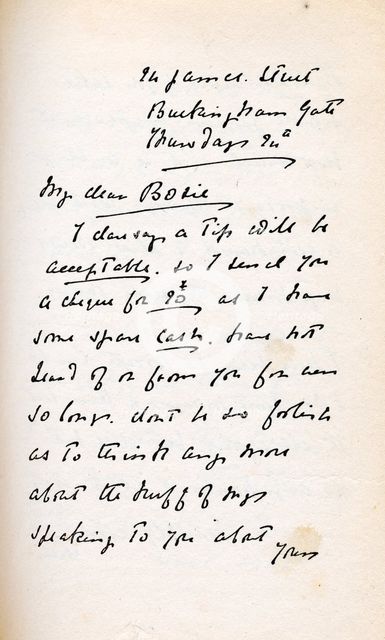 James. Street
Buckingham Gate
Thursday
My dear Bosie
I daresay a Tip will be
acceptable. so I send you
a cheque for as I have
some spare cash. have not
heard of or from you for ever
so long. dont be so foolish
as to think any more
about the of my
speaking to you about
yours